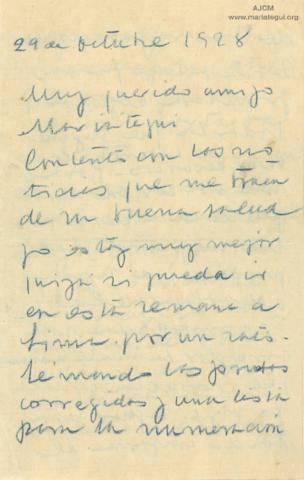 AJCM
www.mariategui.org
29 de octubre 1928
Muy querido amigo
Mariategui
Contento con las no
ticias que me traen
de su buena salud
yo estoy muy mejor
quizá si pueda ir
en esta semana a
Lima. por un rato.
Le mando las
corregidas y una lista
para la numeración